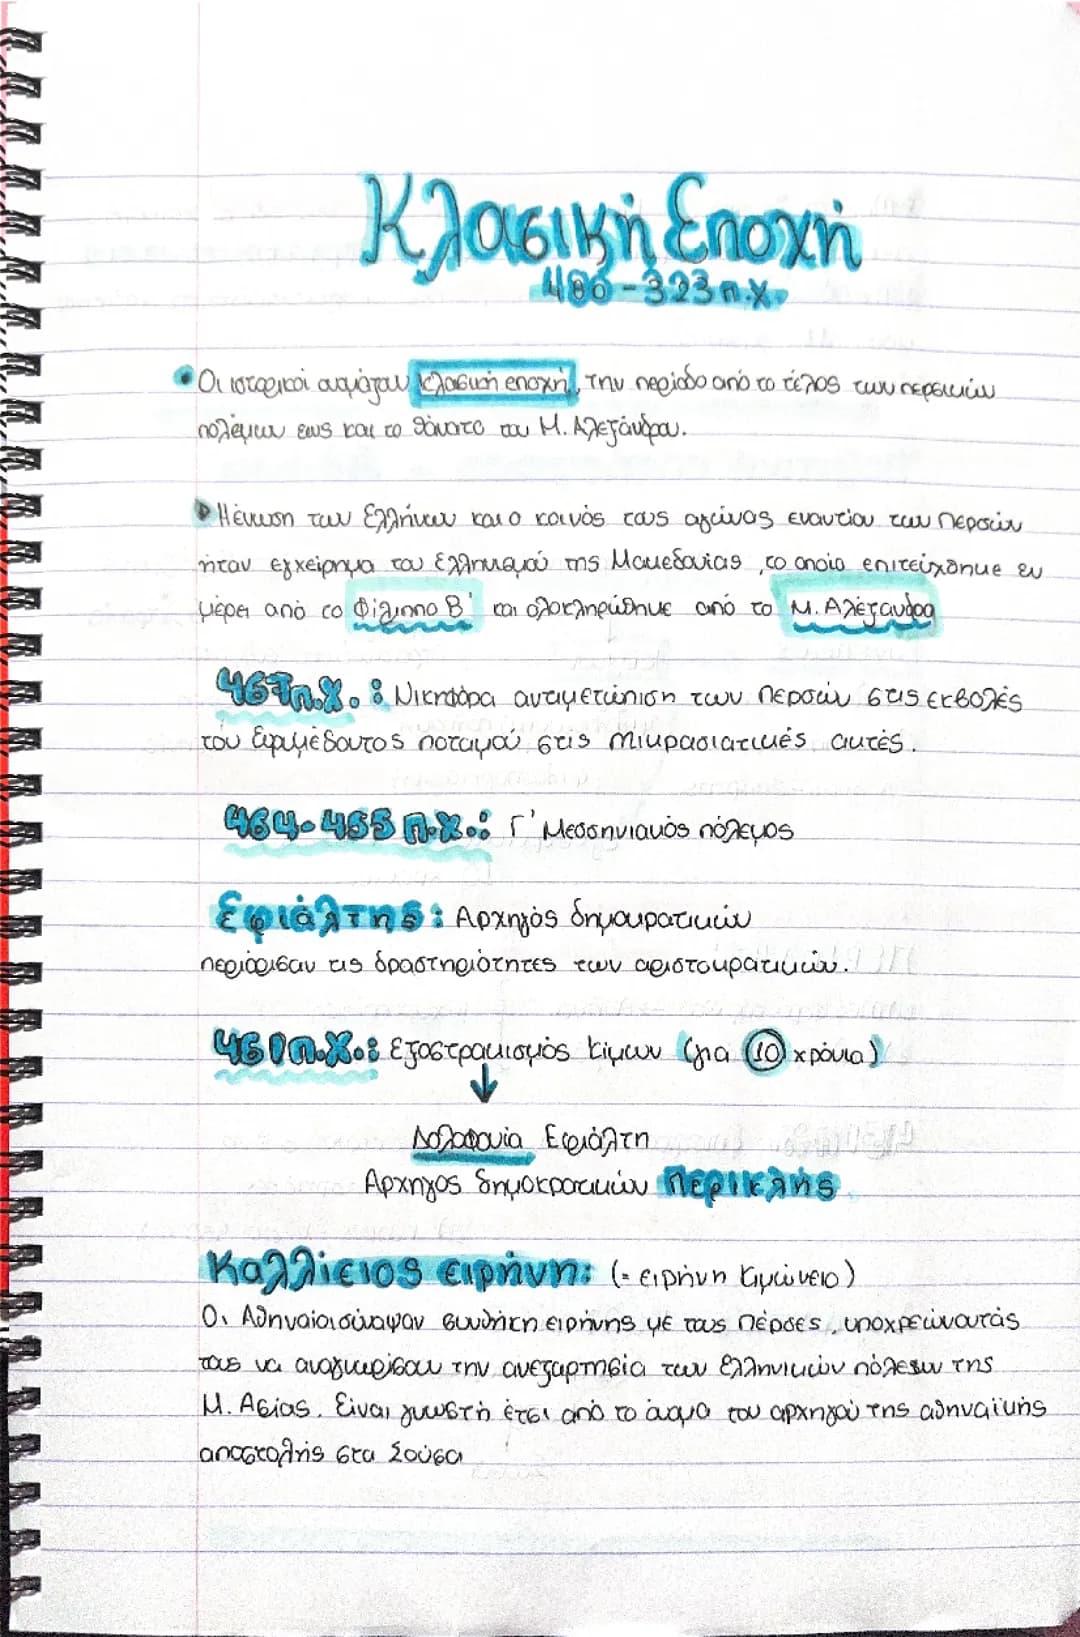 Κλασική Εποχή
480-323 π.Χ.
• Οι ιστορικοί ονομάζουν κλασική εποχή, την περίοδο από το τέλος των περσικών
πολέμων έως και το θάνατο του Μ. Αλεξάνδρου.
Η ένωση των Ελλήνων και ο κοινός τους αγώνας εναντίον των Περσών
ήταν εγχείρημα του Ελληνισμού της Μακεδονίας, το οποίο επιτεύχθηκε εν
μέρει από το Φίλιππο Β' και ολοκληρώθηκε από το Μ. Αλέξανδρο
467 π.Χ.: Νικηφόρα αντιμετώπιση των Περσών στις εκβολές
του Ευρυμέδοντος ποταμού στις μικρασιατικές ακτές.
464-455 π.Χ.: Γ' Μεσσηνιακός πόλεμος
Εφιάλτης: Αρχηγός δημοκρατικών
περιόρισαν τις δραστηριότητες των αριστοκρατικών.
461 π.Χ.: Εξοστρακισμός Κίμων (για 10 χρόνια)
↓
Δολοφονία Εφιάλτη
Αρχηγος δημοκρατικών Περικλής
Καλλίειος ειρήνη: (= ειρήνη Κιμώνειο)
Οι Αθηναίοι σύναψαν συνθήκη ειρήνης με τους Πέρσες, υποχρεώνοντάς
τους να αναγνωρίσουν την ανεξαρτησία των Ελληνικών πόλεων της
Μ. Ασίας. Είναι γνωστή έτσι από το όνομα του αρχηγού της αθηναϊκής
αποστολής στα Σούσα